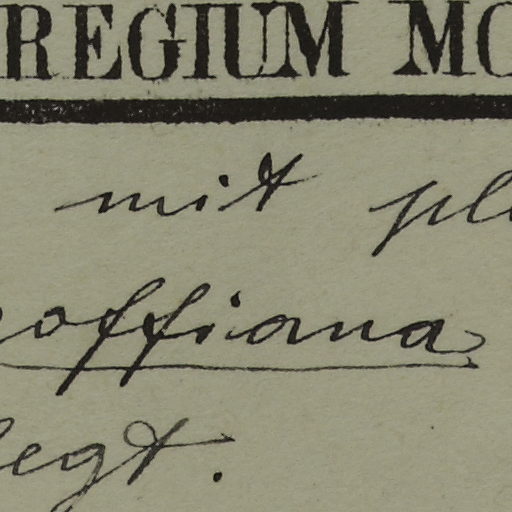 REGIUM MO
mit pl
offiana
legt.